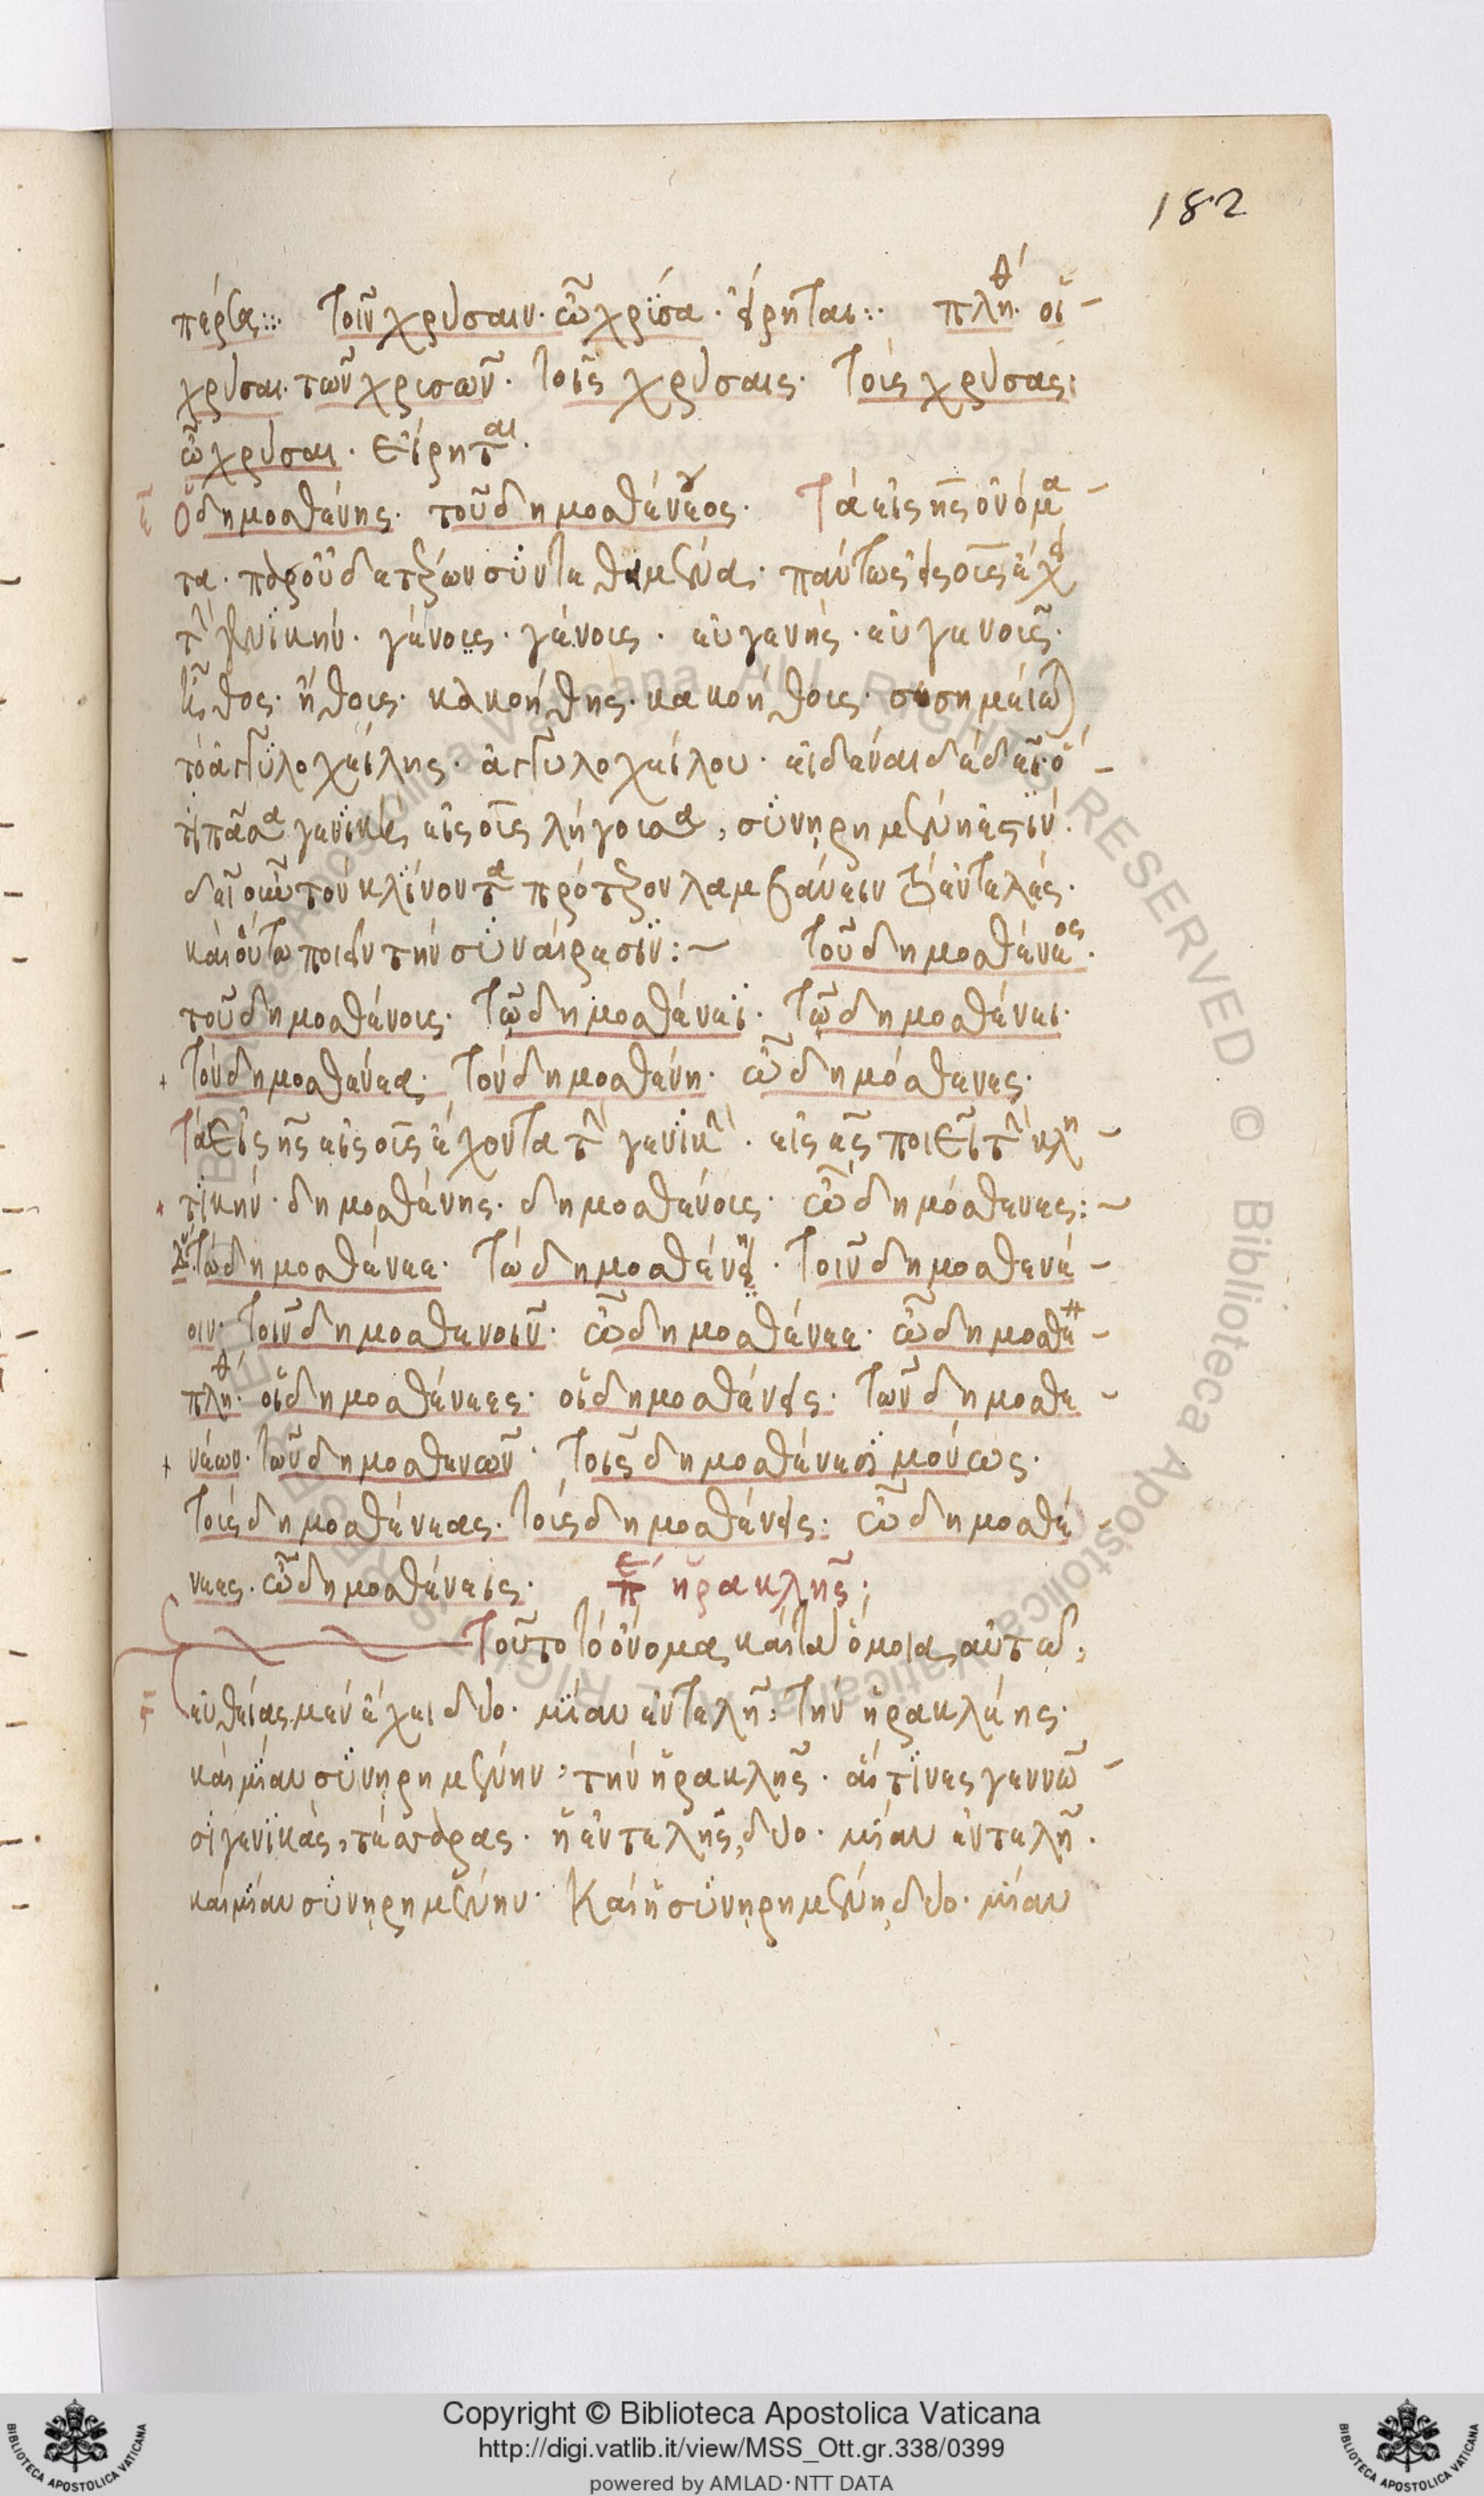 182
τοῖν χρύσαιν. ὦ χρύσα. εἴρηται:. πλη^θ΄. οἱ –
χρύσαι. τῶν χρισῶν. τοῖς χρύσαις. τοὺς χρύσας:
ὦ χρύσαι. εἴρηται.
Ὁ δημοσθένης. τοῦ δημοσθένεος. Τὰ εἰς ης ὀνόμα –
γένους. εὐγενής. εὐγενοῦς.
ἦθος. ἤθους. κακοήθης. κακοήθους.
τὸ ἀγκυλοχείλης. ἀγκυλοχείλου. εἰδέναι δὲ δεῖ ὅ –
τι πᾶσαι γενικαὶ εἰς ους λήγουσαι, συνηρημέναι εἰσίν.
δεῖ οὖν τὸν κλίνοντα πρότερον λαμβάνειν ἐντελές.
καὶ οὕτω ποιεῖν τὴν συναίρεσιν:~ τοῦ δημοσθένεος.
τοῦ δημοσθένους. Τῷ δημοσθένεϊ. Τῷ δημοσθένει.
+ τὸν δημοσθένεα. τὸν δημοσθένη. ὦ δημόσθενες.
Τὰ εἰς ης εἰς ους ἔχοντα τὴν γενικὴν. εἰς ες ποιεῖ τὴν κλη –
τικήν. δημοσθένης. δημοσθένους. ὦ δημόσθενες:~
Τὼ δημοσθένεε. Τὼ δημοσθένη. τοῖν δημοσθενέ –
οιν. τοῖν δημοσθενοῖν. ὦ δημοσθένεε. ὦ δημοσθένη –
πλη^θ΄. οἱ δημοσθένεες. οἱ δημοσθένεις. τῶν δημοσθε –
+ νέων. τῶν δημοσθενῶν. τοῖς δημοσθένεσι μόνως.
τοὺς δημοσθένεας. τοὺς δημοσθένεις: ὦ δημοσθέ –
νεες. ὦ δημοσθένεις. ἡρακλῆς;
Τοῦτο τὸ ὄνομα, καὶ τὰ ὅμοια αὐτῷ,
εὐθείας μὲν ἔχει δύο. μίαν ἐντελῆ, τὴν ἡρακλέης.
καὶ μίαν συνηρημένην, τὴν ἡρακλῆς. αἵτινες γεννῶ –
σι γενικὰς, τέσσαρας. ἡ ἐντελῆς, δύο. μίαν ἐντελῆ.
καὶ μίαν συνηρημένην. Καὶ ἡ συνηρημένη, δύο. μίαν
Copyright © Biblioteca Apostolica Vaticana
http://digi.vatlib.it/view/MSS_Ott.gr.338/0399
powered by AMLAD·NTT DATA